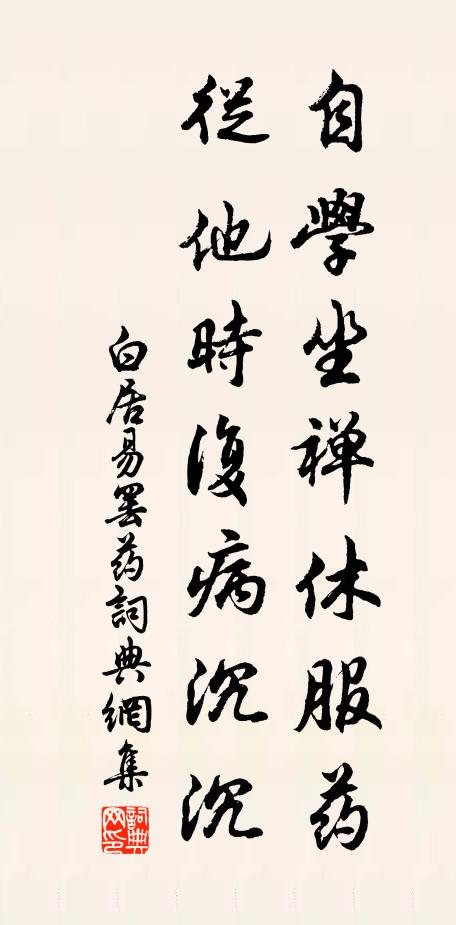 自學坐禅休服药
從他時復病沉沉
白居易罢药詞典網集
詞典网印